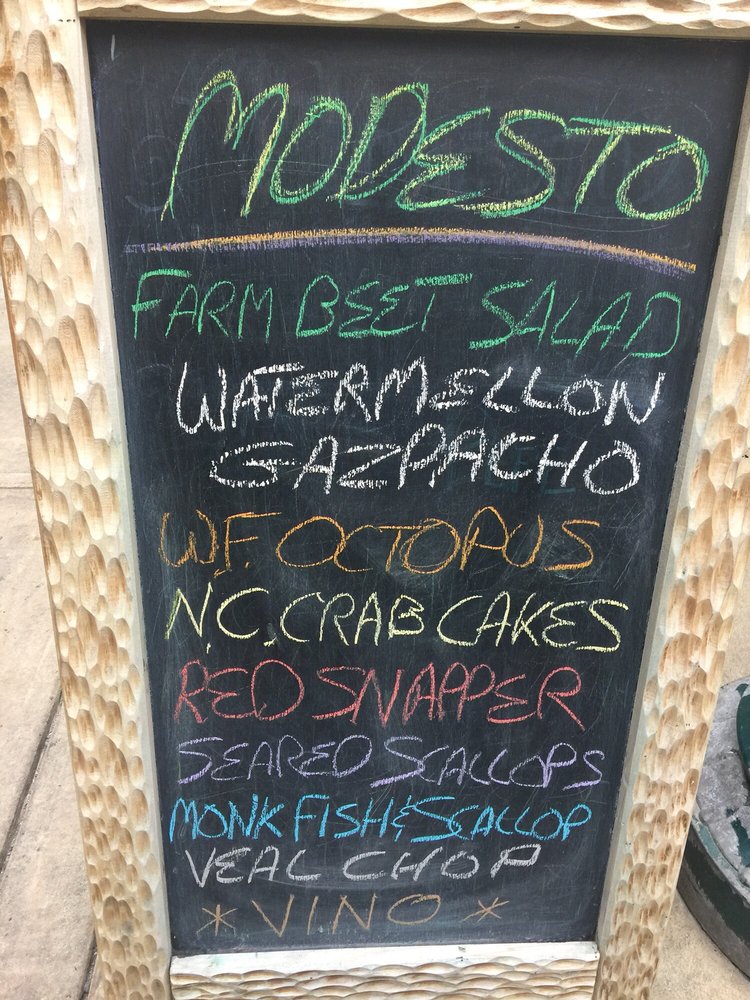 MODESTO
FARM BEET SALAD
WATERMELLON
GAZPACHO
W.F. OCTOPUS
N.C. CRAB CAKES
RED SNAPPER
SEARED SCALLOPS
MONK FISH & SCALLOP
VEAL CHOP
* VINO *